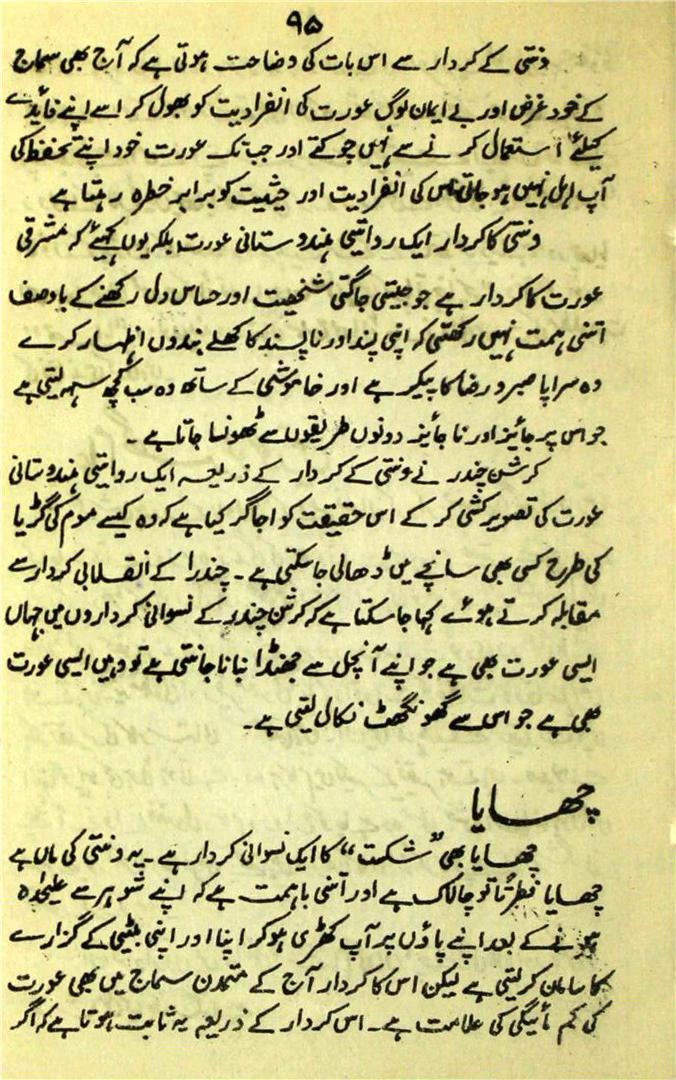 ۹۵
ونتی کے کردار سے اس بات کی وضاحت ہوتی ہے کہ آج بھی سماج
کے خود غرض اور بے ایمان لوگ عورت کی انفرادیت کو بھول کر اسے اپنے فائدے
کیلئے استعمال کرنے سے نہیں چوکتے اور جب تک عورت خود اپنے تحفظ کی
آپ اہل نہیں ہو جاتی اس کی انفرادیت اور حیثیت کو برابر خطرہ رہتا ہے
ونتی کا کردار ایک روایتی ہندوستانی عورت بلکہ یوں کہیئے کہ مشرقی
عورت کا کردار ہے جو جیتی جاگتی شخصیت اور حساس دل رکھنے کے باوصف
اتنی ہمت نہیں رکھتی کہ اپنی پسند اور ناپسند کا کھلے بندوں اظہار کرے
وہ سراپا صبر و رضا کا پیکر ہے اور خاموشی کے ساتھ وہ سب کچھ سہہ لیتی ہے
جو اس پر جائیز اور ناجائیز دونوں طریقوں سے ٹھونسا جاتا ہے۔
کرشن چندر نے ونتی کے کردار کے ذریعہ ایک روایتی ہندوستانی
عورت کی تصویر کشی کر کے اس حقیقت کو اجاگر کیا ہے کہ وہ کیسے موم کی گڑیا
کی طرح کسی بھی سانچے میں ڈھالی جا سکتی ہے۔ چندرا کے انقلابی کردار سے
مقابلہ کرتے ہوئے کہا جا سکتا ہے کہ کرشن چندر کے نسوانی کرداروں میں جہاں
ایسی عورت بھی ہے جو اپنے آنچل سے جھنڈا بنانا جانتی ہے تو وہیں ایسی عورت
بھی ہے جو اس سے گھونگھٹ نکال لیتی ہے۔
چھایا
چھایا بھی "شکست" کا ایک نسوانی کردار ہے۔ یہ ونتی کی ماں ہے
چھایا فطرتاً تو چالاک ہے اور اتنی باہمت ہے کہ اپنے شوہر سے علیحدہ
ہونے کے بعد اپنے پاؤں پر آپ کھڑی ہو کر اپنا اور اپنی بیٹی کے گزارے
کا سامان کر لیتی ہے لیکن اس کا کردار آج کے متمدن سماج میں بھی عورت
کی کم مائیگی کی علامت ہے۔ اس کردار کے ذریعہ یہ ثابت ہوتا ہے کہ اگر